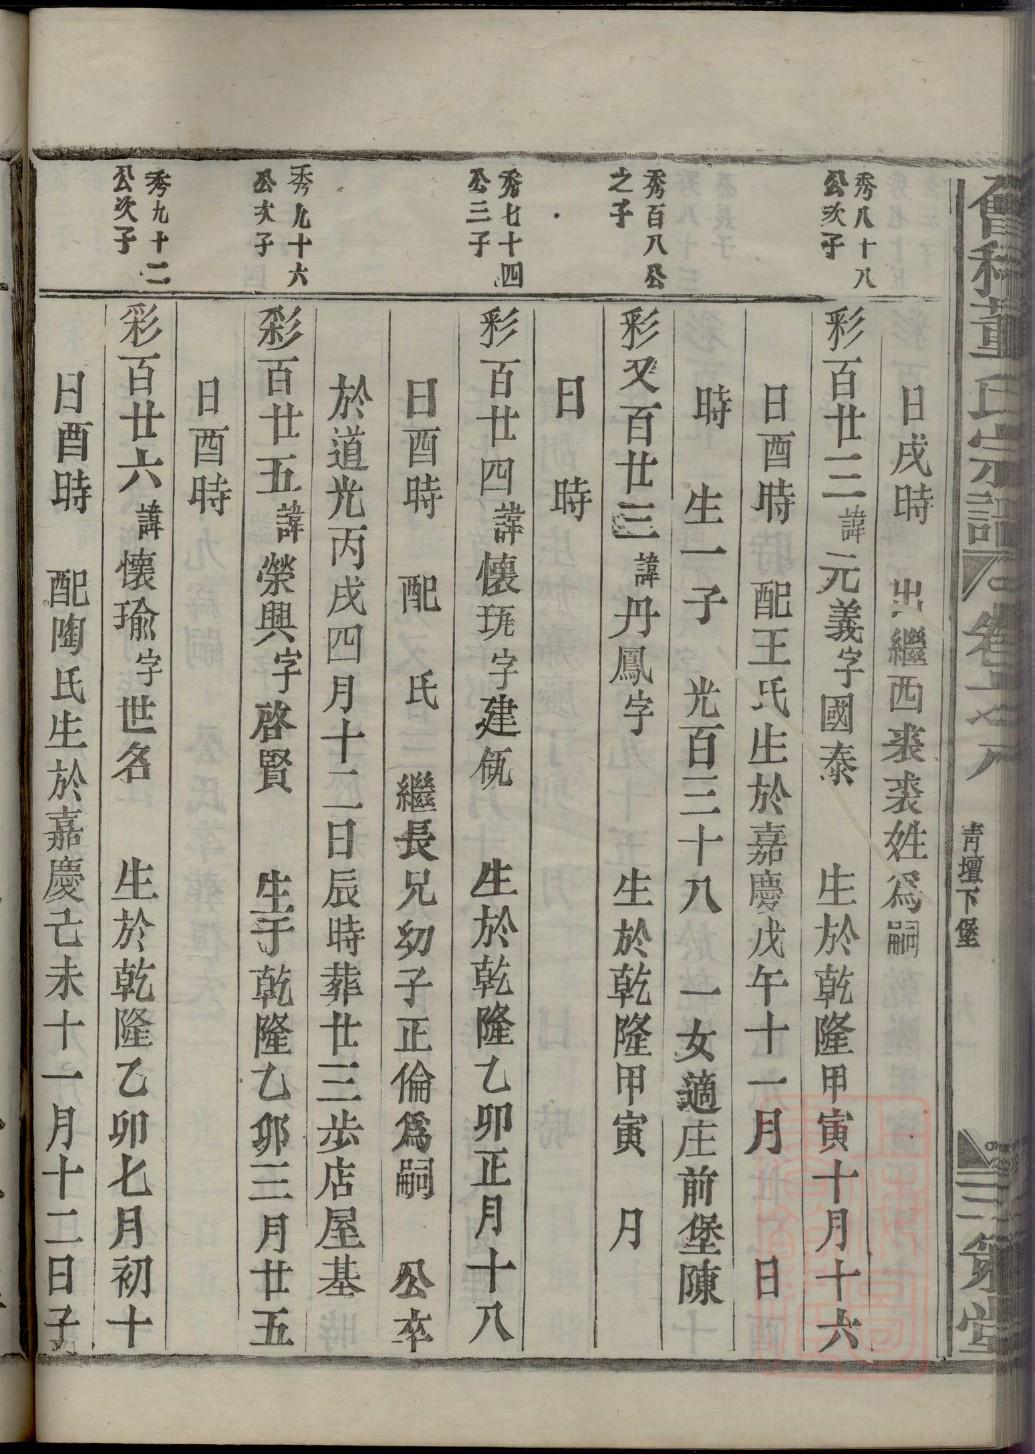 董氏宗譜 卷之八 青壇下堡 三策堂
日戌時 出繼西裘裘姓爲嗣
秀八十八公次子
彩百廿三諱元義字國泰 生於乾隆甲寅十月十六
日酉時 配王氏生於嘉慶戊午十一月 日
時 生一子 光百三十八 一女適庄前堡陳
秀百八公之子
彩又百廿三諱丹鳳字 生於乾隆甲寅 月
日 時
秀七十四公三子
彩百廿四諱懷珗字建瓴 生於乾隆乙卯正月十八
日酉時 配 氏 繼長兄幼子正倫爲嗣 公卒
於道光丙戌四月十二日辰時葬廿三步店屋基
秀九十六公次子
彩百廿五諱榮興字啓賢 生于乾隆乙卯三月廿五
日酉時
秀九十二公次子
彩百廿六諱懷瑜字世名 生於乾隆乙卯七月初十
日酉時 配陶氏生於嘉慶己未十一月十二日子